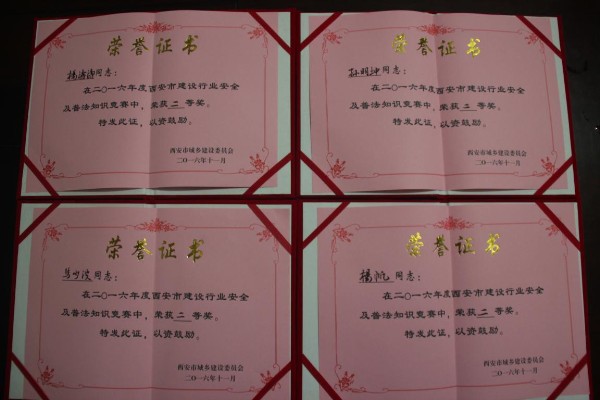 荣誉证书
同志：
在二〇一六年度西安市建设行业安全
及普法知识竞赛中，荣获二等奖。
特发此证，以资鼓励。
西安市城乡建设委员会
二〇一六年十一月
荣誉证书
孙明坤同志：
在二〇一六年度西安市建设行业安全
及普法知识竞赛中，荣获二等奖。
特发此证，以资鼓励。
西安市城乡建设委员会
二〇一六年十一月
荣誉证书
同志：
在二〇一六年度西安市建设行业安全
及普法知识竞赛中，荣获二等奖。
特发此证，以资鼓励。
西安市城乡建设委员会
二〇一六年十一月
荣誉证书
杨帆同志：
在二〇一六年度西安市建设行业安全
及普法知识竞赛中，荣获二等奖。
特发此证，以资鼓励。
西安市城乡建设委员会
二〇一六年十一月